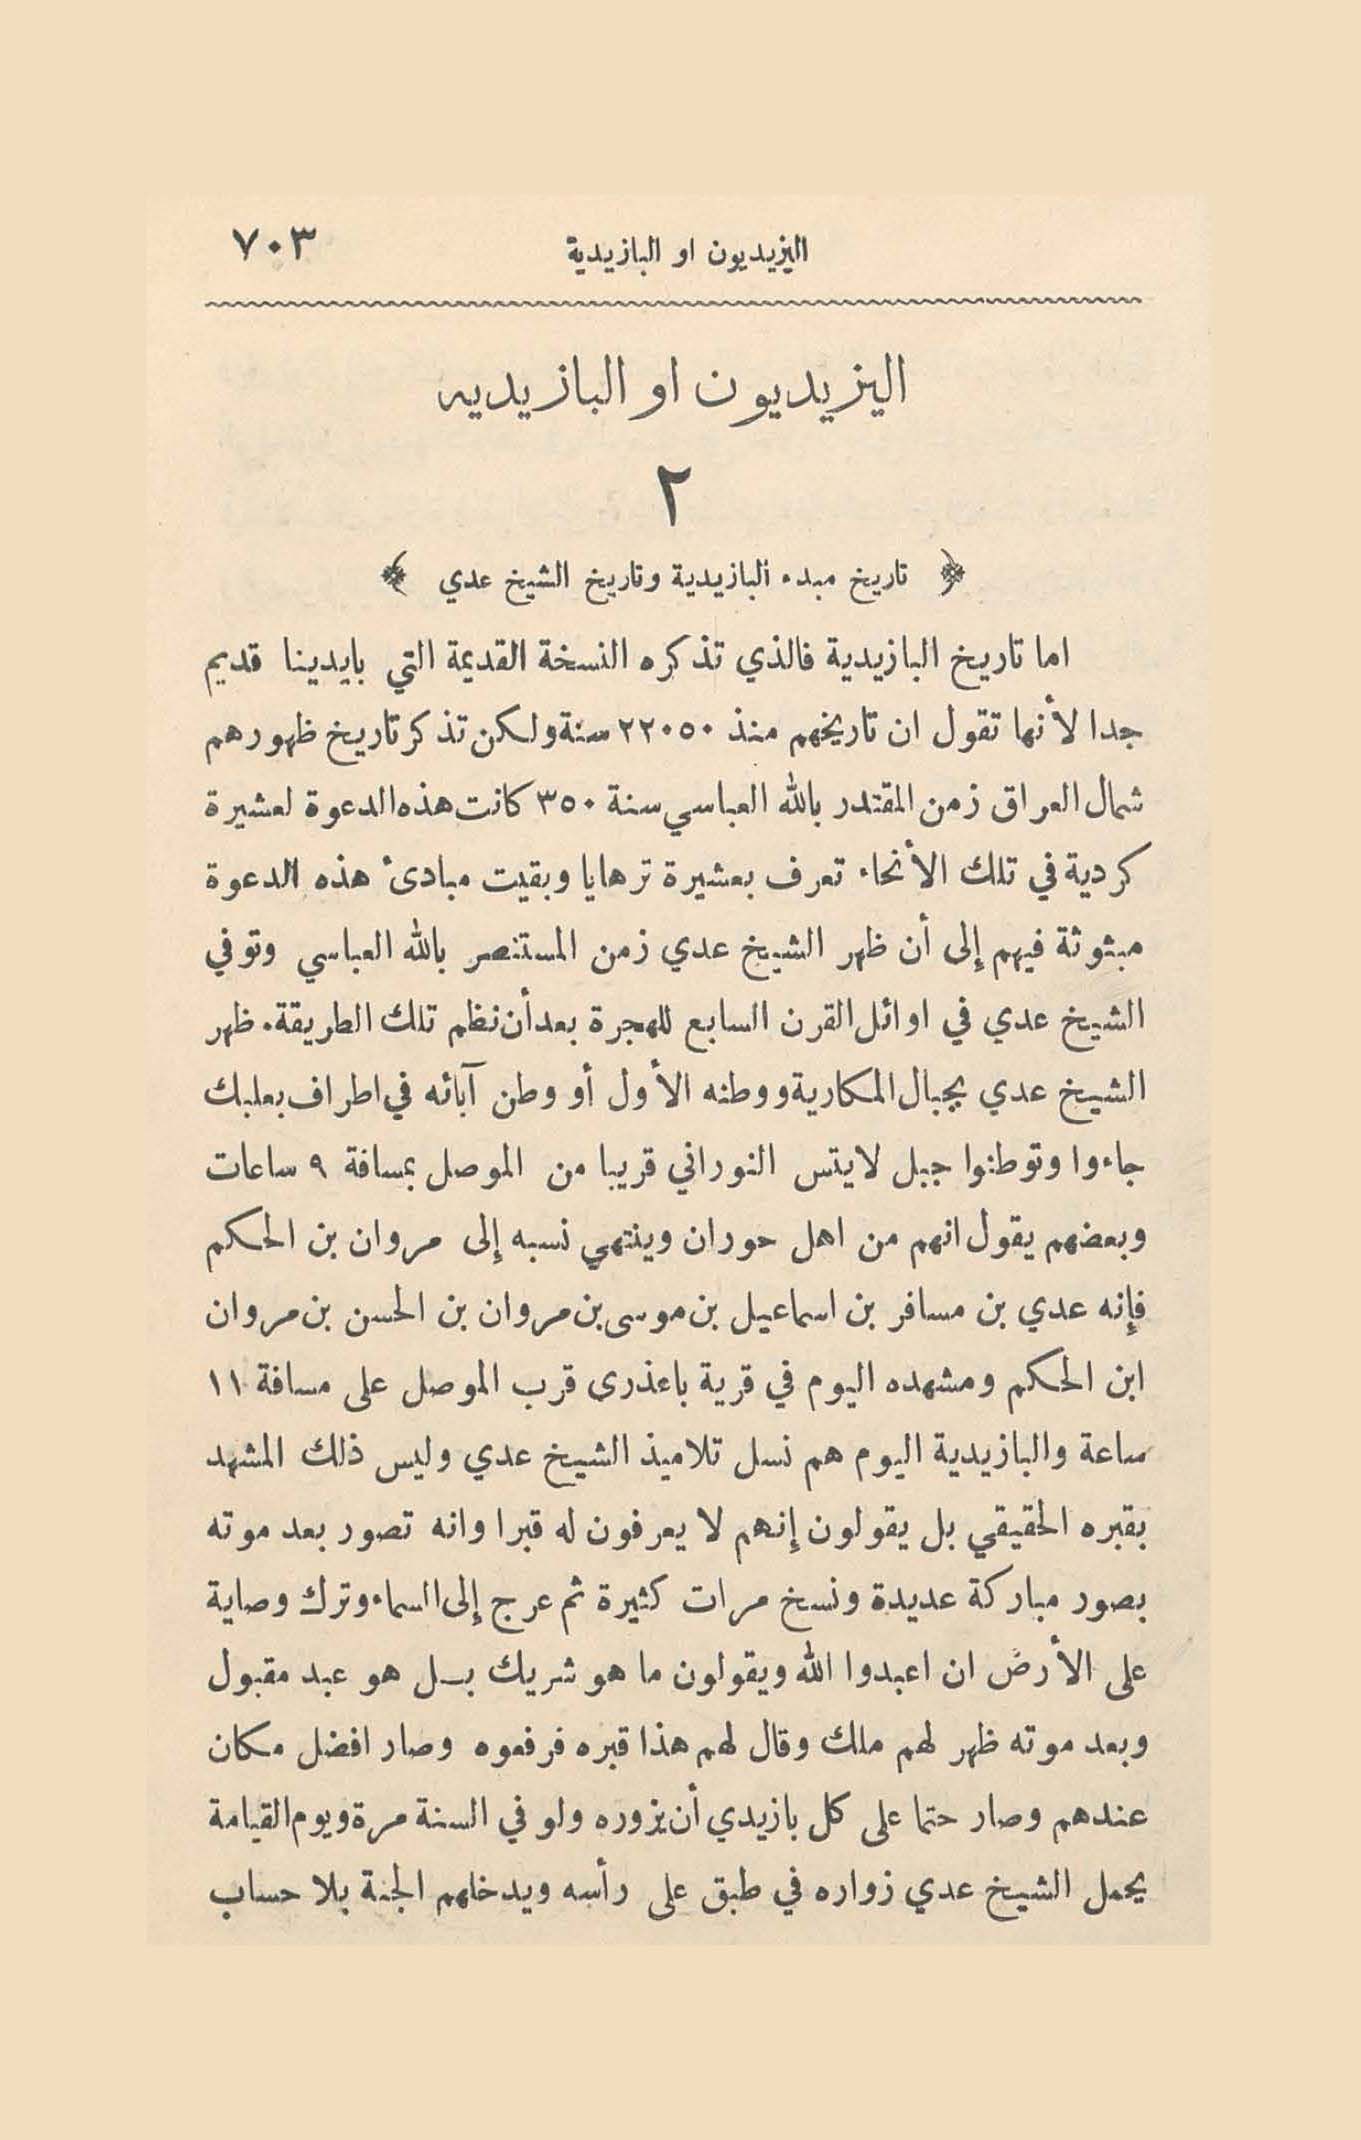 اليزيديون او البازيدية ٧٠٣
اليزيديون او البازيديه
٢
﴿ تاريخ مبدء البازيدية وتاريخ الشيخ عدي ﴾
اما تاريخ البازيدية فالذي تذكره النسخة القديمة التي بايدينا قديم
جدا لأنها تقول ان تاريخهم منذ ٢٢٠٥٠ سنة ولكن تذكر تاريخ ظهورهم
شمال العراق زمن المقتدر بالله العباسي سنة ٣٥٠ كانت هذه الدعوة لعشيرة
كردية في تلك الأنحاء تعرف بعشيرة ترهايا وبقيت مبادئ هذه الدعوة
مبثوثة فيهم إلى أن ظهر الشيخ عدي زمن المستنصر بالله العباسي وتوفي
الشيخ عدي في اوائل القرن السابع للهجرة بعد أن نظم تلك الطريقة. ظهر
الشيخ عدي بجبال المكارية ووطنه الأول أو وطن آبائه في اطراف بعلبك
جاءوا وتوطنوا جبل لايتس النوراني قريبا من الموصل بمسافة ٩ ساعات
وبعضهم يقول انهم من اهل حوران وينتهي نسبه إلى مروان بن الحكم
فإنه عدي بن مسافر بن اسماعيل بن موسى بن مروان بن الحسن بن مروان
ابن الحكم ومشهده اليوم في قرية باعذرى قرب الموصل على مسافة ١١
ساعة والبازيدية اليوم هم نسل تلاميذ الشيخ عدي وليس ذلك المشهد
بقبره الحقيقي بل يقولون إنهم لا يعرفون له قبرا وانه تصور بعد موته
بصور مباركة عديدة ونسخ مرات كثيرة ثم عرج إلى السماء وترك وصاية
على الأرض ان اعبدوا الله ويقولون ما هو شريك بل هو عبد مقبول
وبعد موته ظهر لهم ملك وقال لهم هذا قبره فرفعوه وصار افضل مكان
عندهم وصار حتما على كل بازيدي أن يزوره ولو في السنة مرة ويوم القيامة
يحمل الشيخ عدي زواره في طبق على رأسه ويدخلهم الجنة بلا حساب